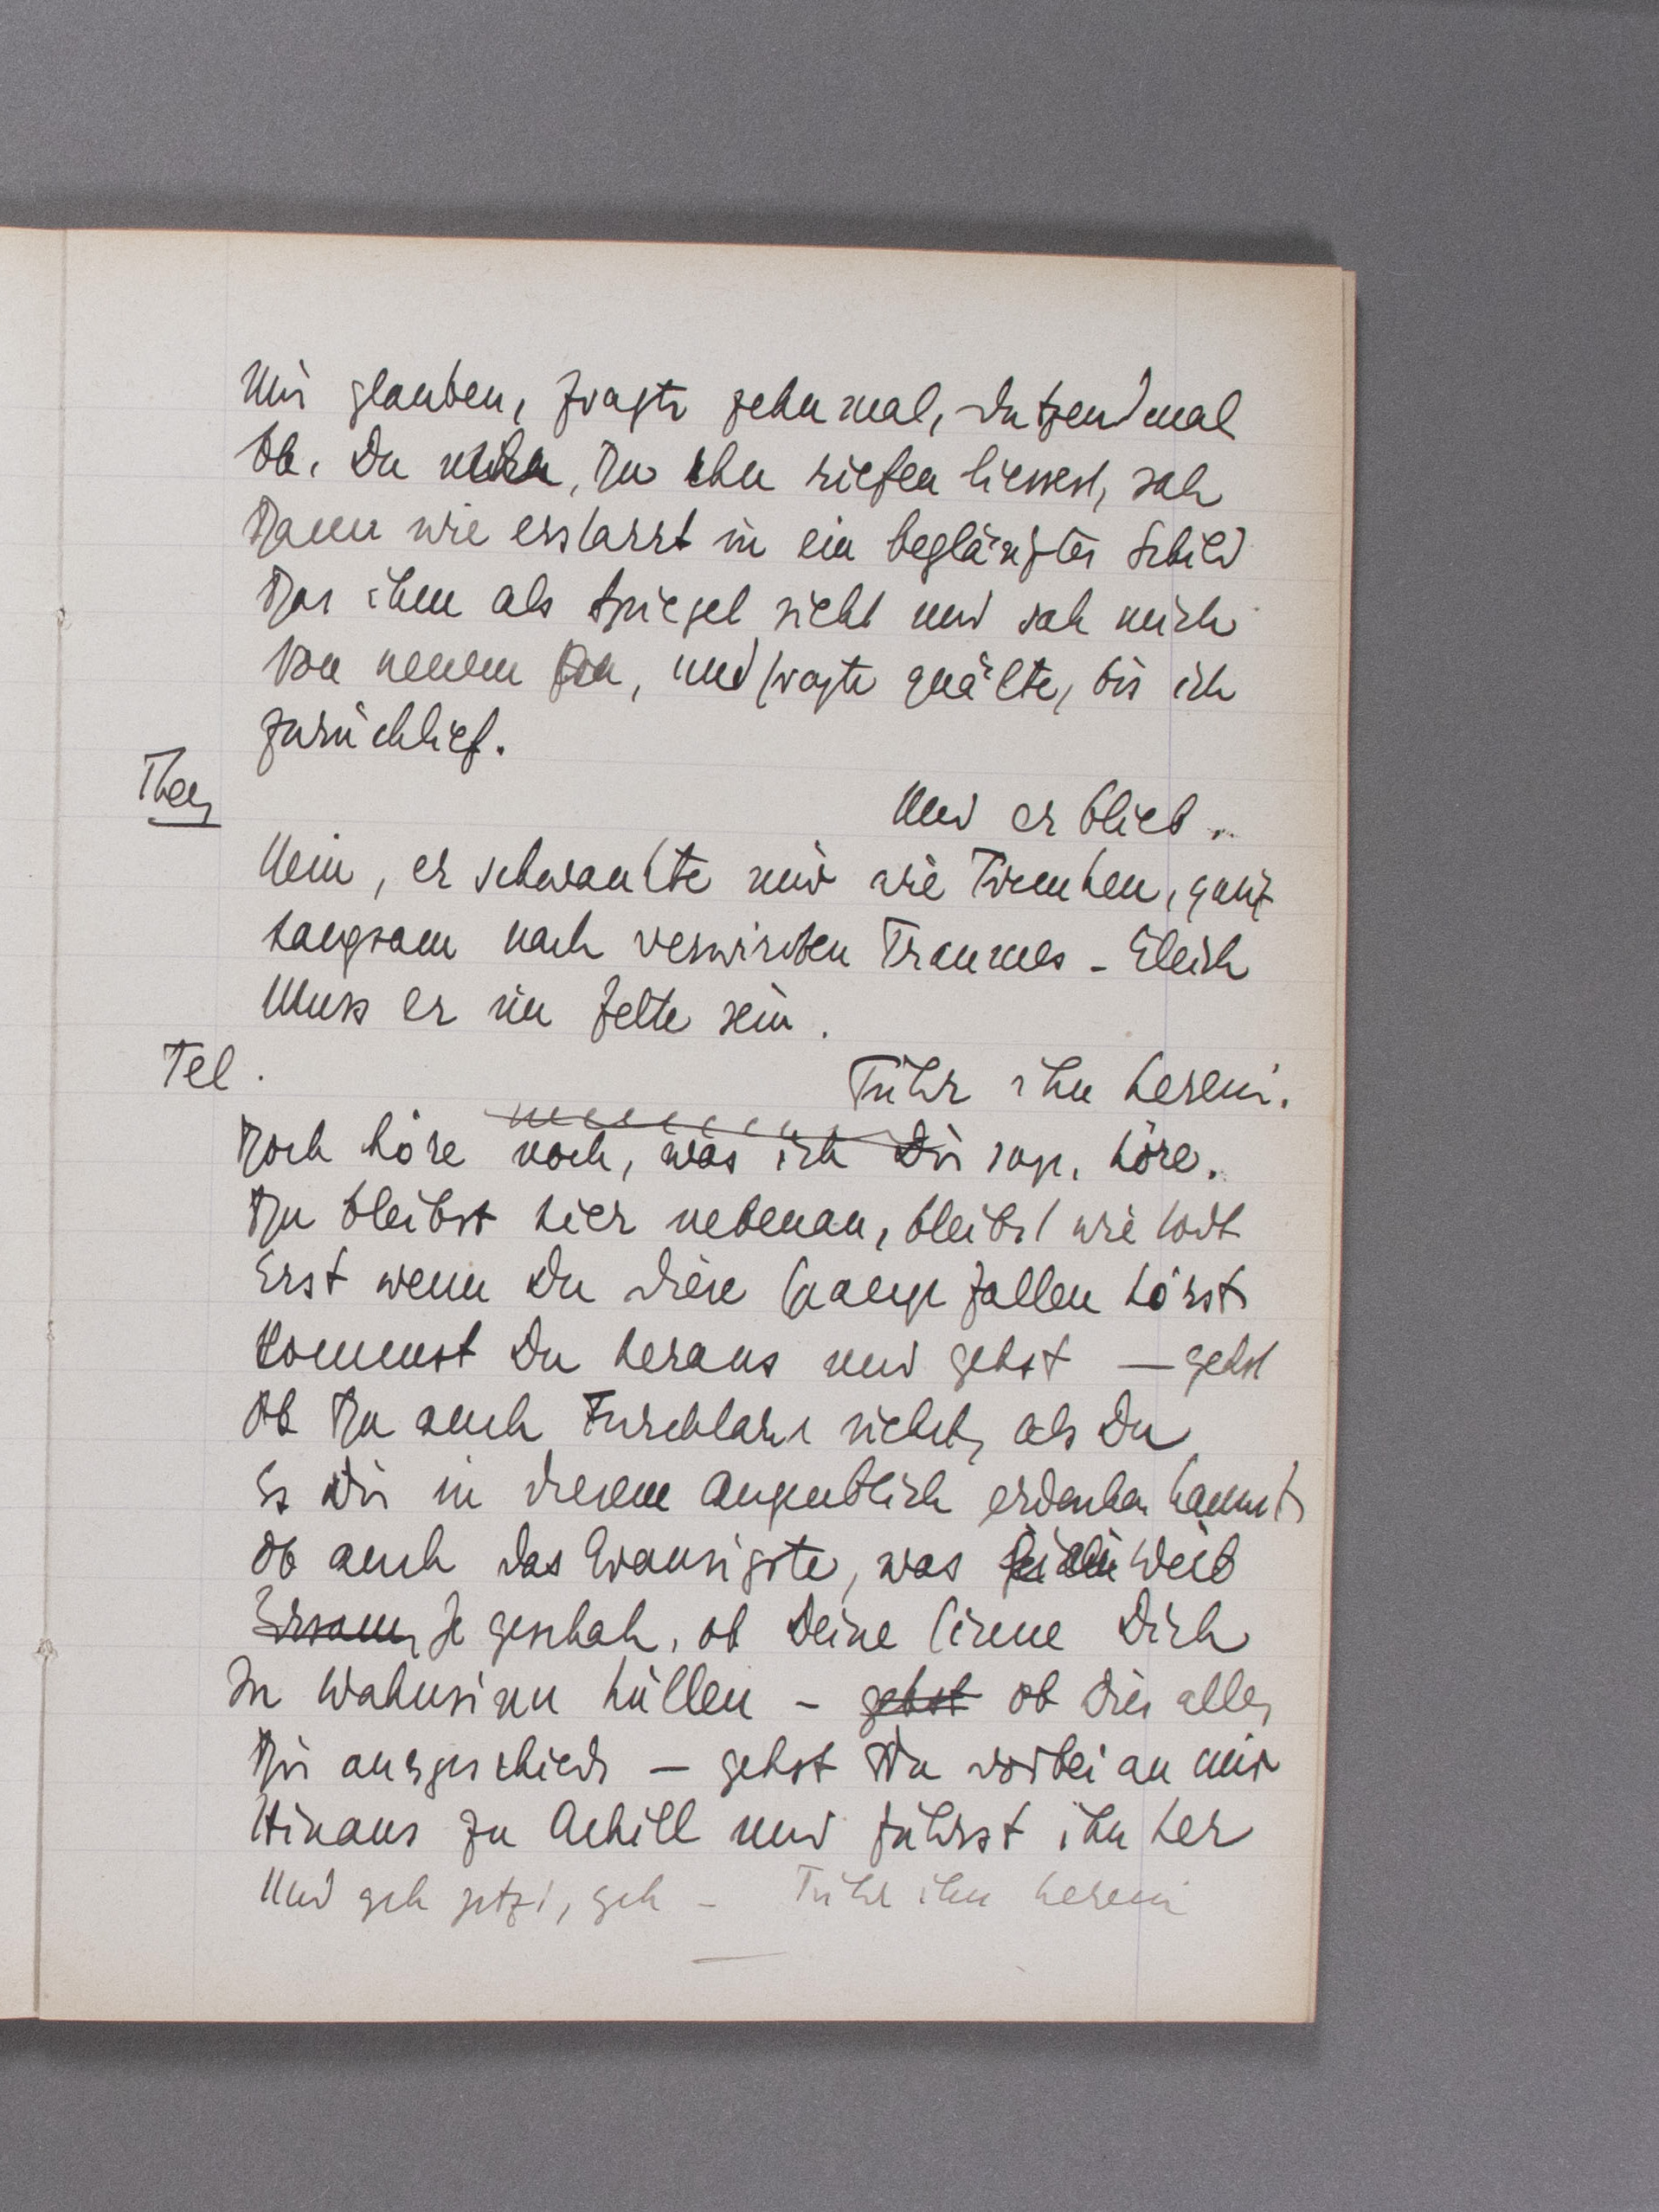 Mir glauben, fragte zehnmal, dutzendmal
Ob. Du, Du ihn riefen liessest, sah
Dann wie erstarrt in ein beglänztes Schild
Das ihm als Spiegel steht und sah mich
Von neuem an, und fragte quälte, bis ich
zurücklief.
Ther
Und er blieb.
Nein, er schwankte mir wie Trunken, ganz
Langsam nach verwirrten Traumes - Gleich
Muss er im Zelte sein.
Tel.
Führ ihn herein.
Doch höre noch, was ich Dir sage, höre.
Du bleibst hier nebenan, bleibst wie todt
Erst wenn Du diese Spange fallen hörst
Kommst Du heraus und gehst — gehst
Ob Du auch Furchtbares siehst, als Du
Es Dir in diesem Augenblick erdenken kannst
Ob auch das Grausigste, was Weib
Ersann, Je geschah, ob Deine Sinne Dich
In Wahnsinn hüllen - gehst ob dies alles
Dir ausgeschieds — gehst Du vorbei an mir
Hinaus zu Achill und führst ihn her
Und geh jetzt, geh - Führ ihn herein